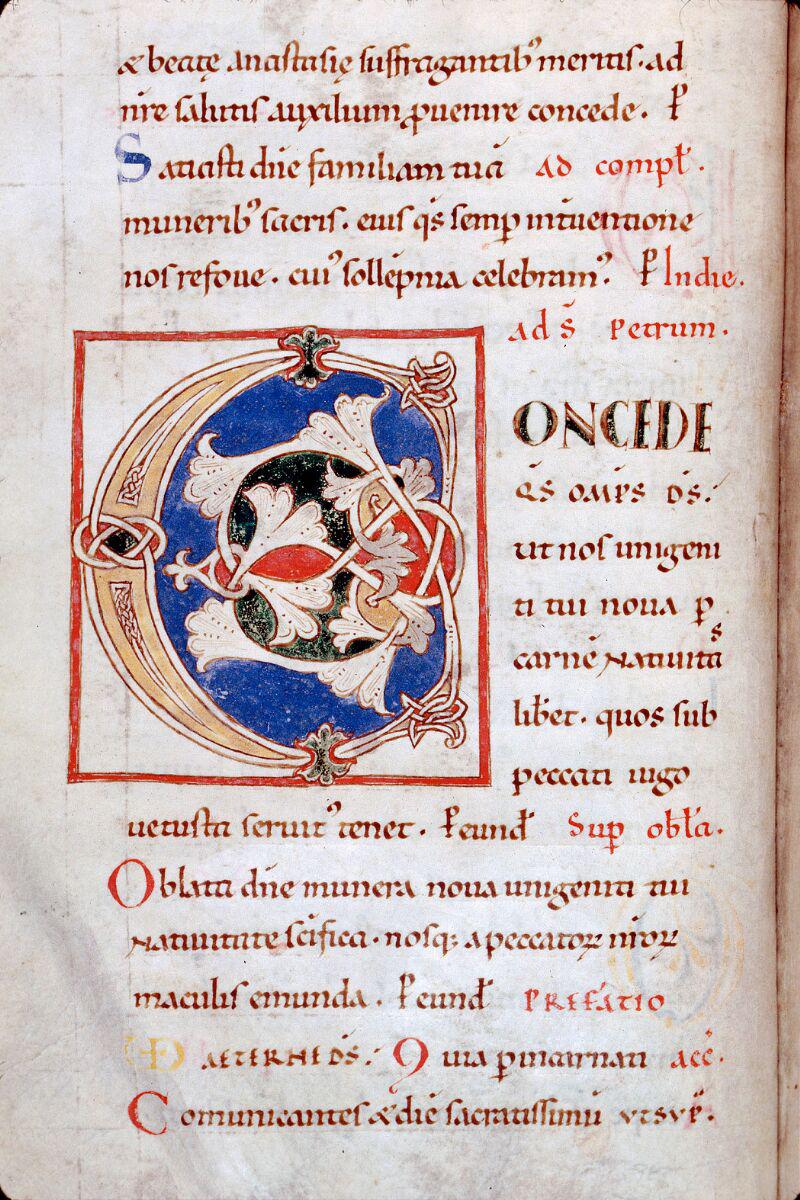 & beatę anastasię suffragantib' meritis. ad
nr̄e salutis auxilium ꝓuenire concede. P̄
Satiasti dn̄e familiam tuā ad compł.
munerib' sacris. eius qs̄ semꝑ int̄uentione
nos refoue. cui' sollēpnia celebram'. P̄ In die.
ad s̄ Petrum.
CONCEDE
qs̄ omps̄ ds̄.
ut nos unigeni
ti tui noua ꝑ
carnē natiuitas
lib̄et. quos sub
peccati iugo
uetusta seruit' tenet. P̄ eund̄ Suꝑ obła.
Oblata dn̄e munera noua unigeniti tui
natiuitate sc̄ifica. nosq; a peccatoꝝ nr̄oꝝ
maculis emunda. P̄ eund̄ PREFATIO
VD AETERNE DS̄. Quia ꝑ incarnati acc̄.
Comunicantes & diē sacratissimū VTSVP̄.